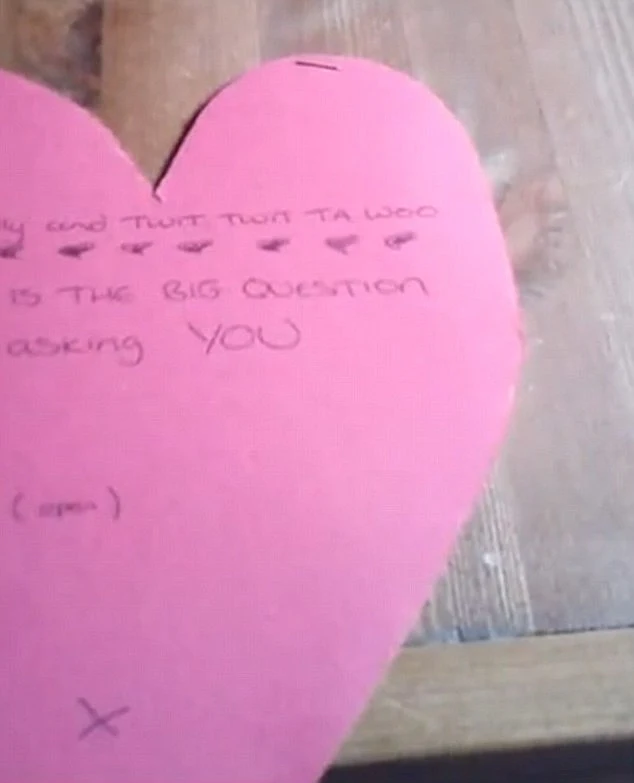 ly and TWIT TWIT TA WOO
IS THE BIG QUESTION
asking YOU
(open)
X